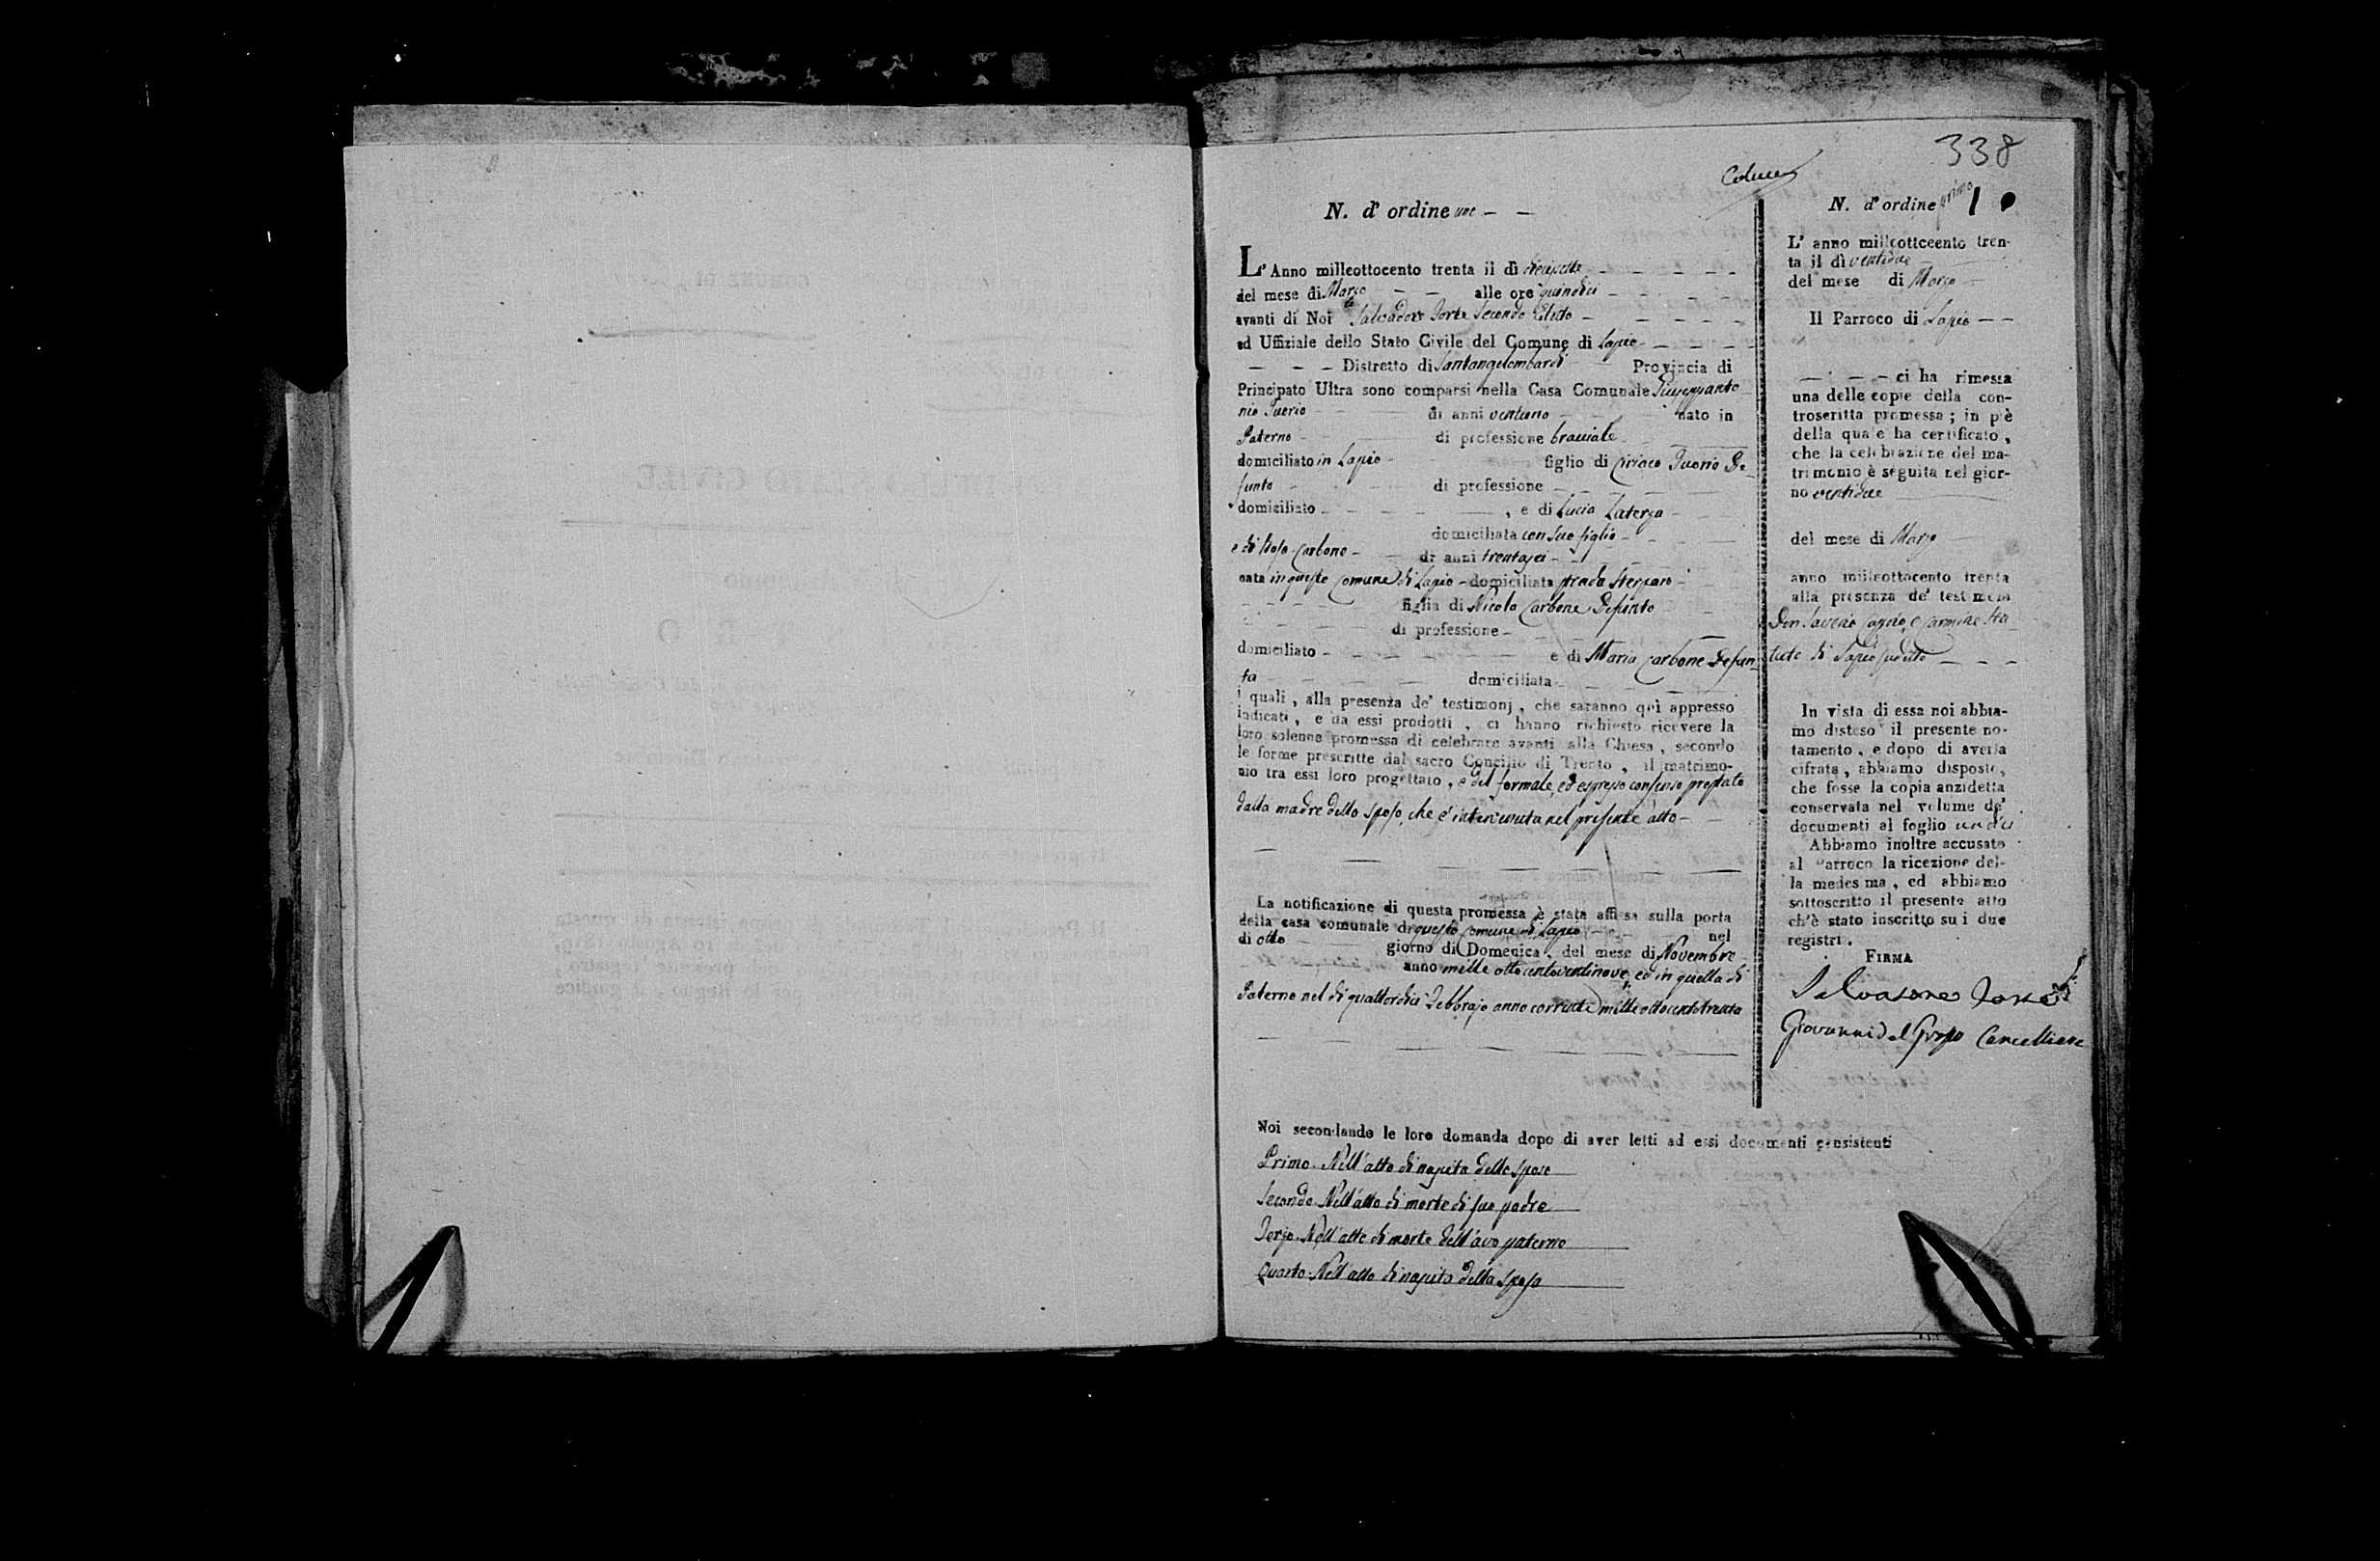 338
N. d' ordine une - -
L' Anno milleottocento trenta il dì diecisette
del mese di Marzo - - alle ore quindici
avanti di Noi Salvadore Forte Secondo Eletto
ed Uffiziale dello Stato Civile del Comune di Lapio
- - - Distretto di Santangelombardi Provincia di
Principato Ultra sono comparsi nella Casa Comunale Giuseppanto
nio di anni ventuno nato in
Paterno di professione bracciale
domiciliato in Lapio figlio di Ciriaco De
funto di professione
domiciliato , e di Lucia Laterza
domiciliata con suo figlio
e di Rosa Carbone di anni trentasei
nata in questo Comune di Lapio - domiciliata strada
figlia di Nicola Carbone Defunto
di professione
domiciliato e di Maria Carbone Defun
ta domiciliata
i quali, alla presenza de' testimonj, che saranno quì appresso
indicati, e da essi prodotti, ci hanno richiesto ricevere la
loro solenne promessa di celebrare avanti alla Chiesa, secondo
le forme prescritte dal sacro Concilio di Trento, il matrimo-
nio tra essi loro progettato, e del formale, ed espresso consenso prestato
dalla madre dello sposo, che e' intervenuta nel presente atto
La notificazione di questa promessa è stata affissa sulla porta
della casa comunale di questo Comune di Lapio nel
di otto giorno di Domenica, del mese di Novembre
anno mille ottocentoventinove, ed in quella di
Paterno nel di quattordici Febbrajo anno corrente mille ottocentotrenta
Noi secondando le loro domanda dopo di aver letti ad essi documenti consistenti
Primo. Nell'atto di nascita dello sposo
Secondo. Nell'atto di morte di suo padre
Terzo. Nell'atto di morte dell'avo paterno
Quarto. Nell'atto di nascita della sposa
N. d' ordine primo 1
L' anno millcottccento tren-
ta il dì ventidue
del mese di Marzo
Il Parroco di Lapio - -
- - - ci ha rimessa
una delle copie della con-
troscritta promessa; in piè
della quale ha certificato,
che la celebrazione del ma-
trimonio è seguita nel gior-
no ventidue
del mese di Marzo
anno milleottocento trenta
alla presenza de' testimonj
Don Saverio e Carmine
di Lapio
In vista di essa noi abbia-
mo disteso il presente no-
tamento, e dopo di averla
cifrata, abbiamo disposto,
che fosse la copia anzidetta
conservata nel volume de'
documenti al foglio undici
Abbiamo inoltre accusato
al Parroco la ricezione del-
la medesima, ed abbiamo
sottoscritto il presente atto
ch'è stato inscritto su i due
registri.
FIRMA
Salvatore Forte
Giovanni del Grosso Cancelliere